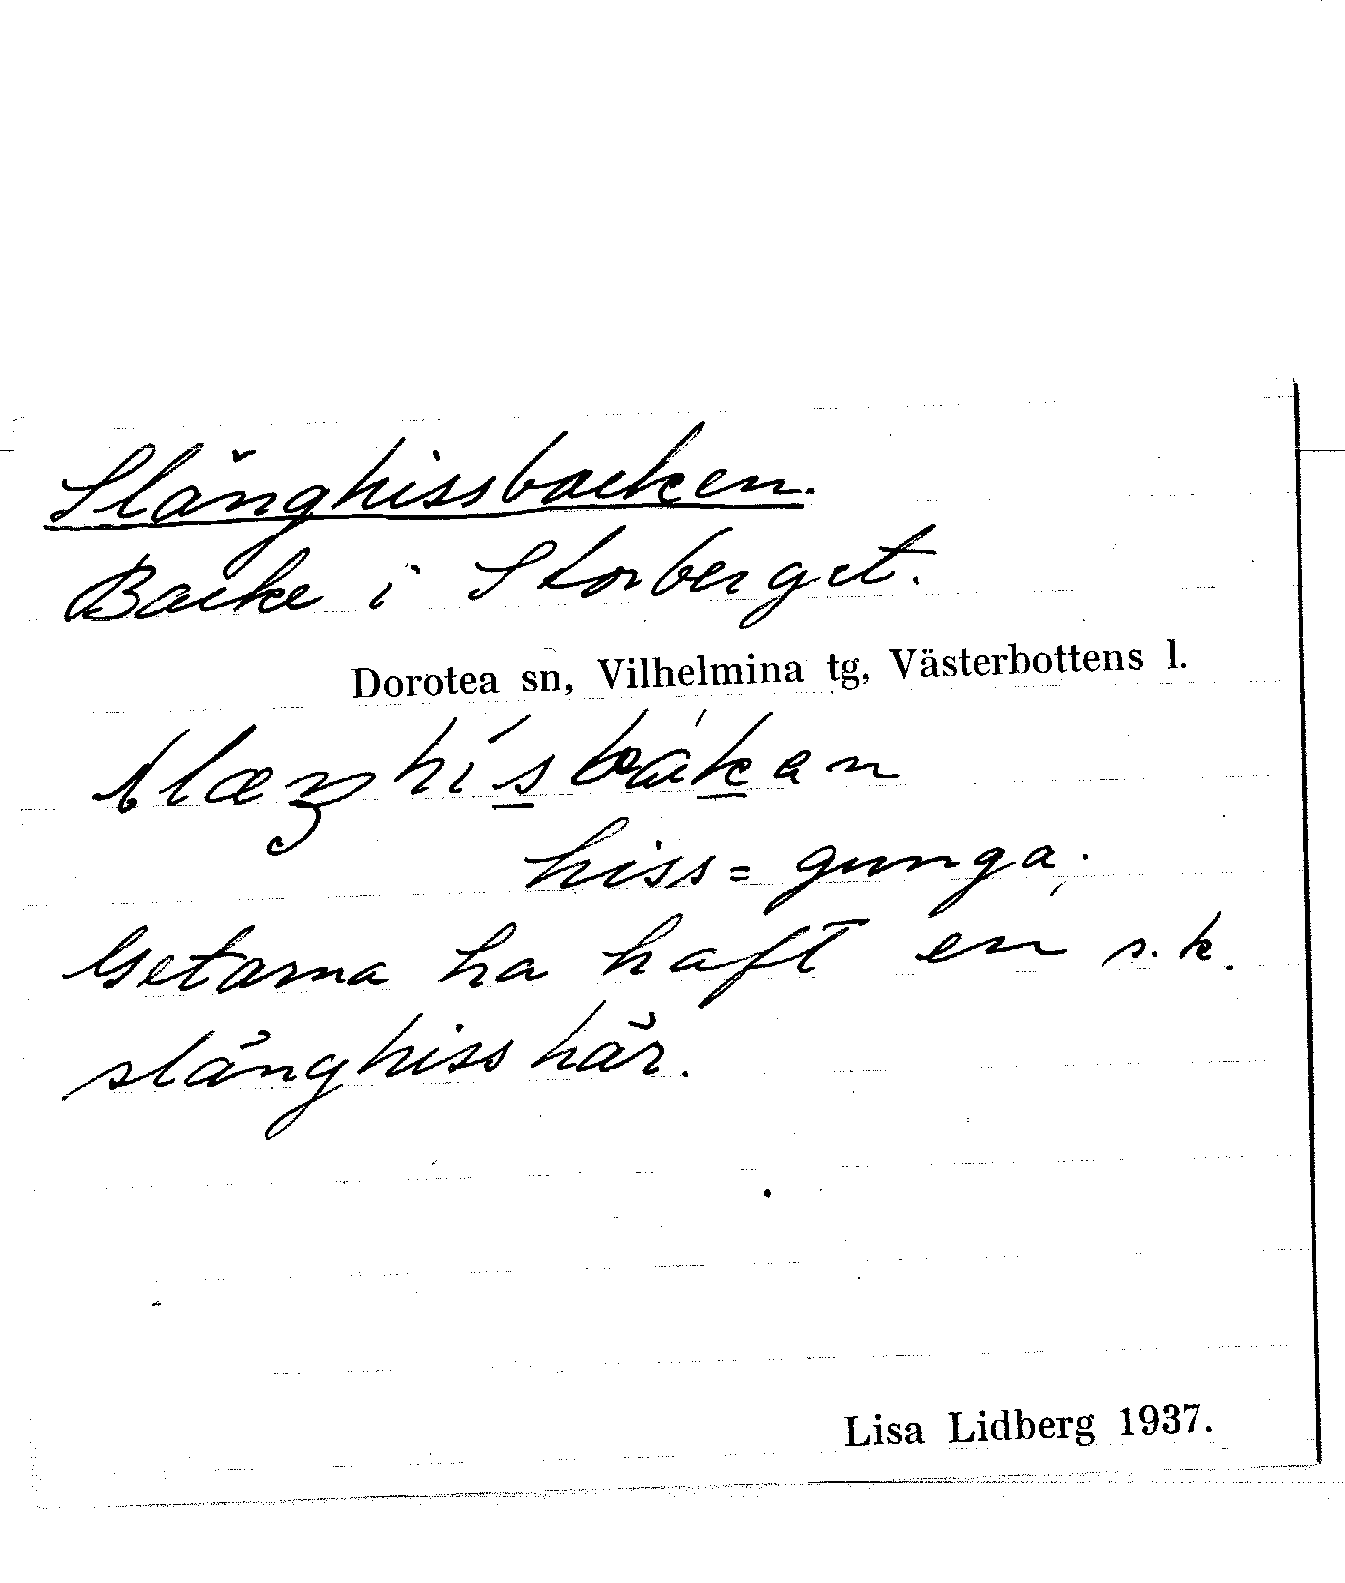 Slänghissbacken.
Backe i Storberget.
Dorotea sn, Vilhelmina tg, Västerbottens l.
hiss = gunga.
Getarna ha haft en s.k.
slänghiss här.
Lisa Lidberg 1937.